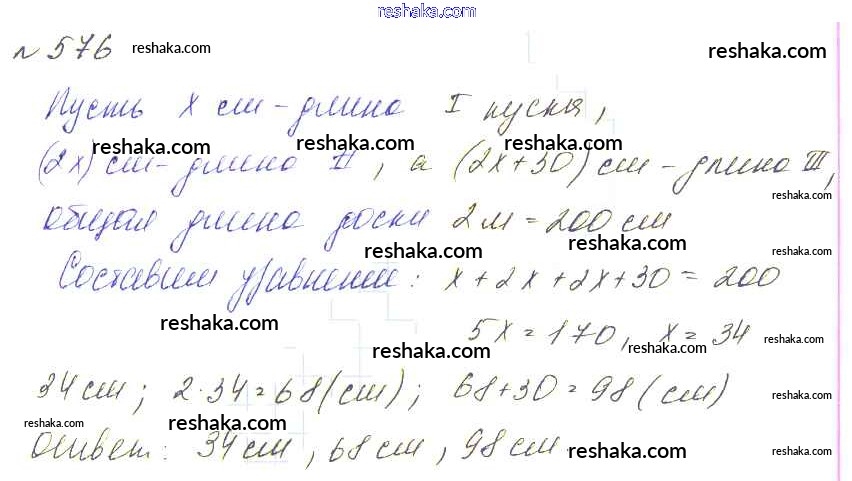 reshaka.com
№ 576 reshaka.com reshaka.com
Пусть x см - длина I куска,
reshaka.com reshaka.com
(2x) см - длина II, а (2x+30) см - длина III,
reshaka.com
общая длина доски 2м = 200 см
reshaka.com reshaka.com reshaka.com
Составим уравнение: x + 2x + 2x + 30 = 200
reshaka.com
5x = 170, x = 34 reshaka.com
reshaka.com reshaka.com
34 см; 2·34 = 68 (см); 68+30 = 98 (см) reshaka.com
reshaka.com reshaka.com reshaka.com
Ответ: 34 см, 68 см, 98 см.
reshaka.com reshaka.com reshaka.com